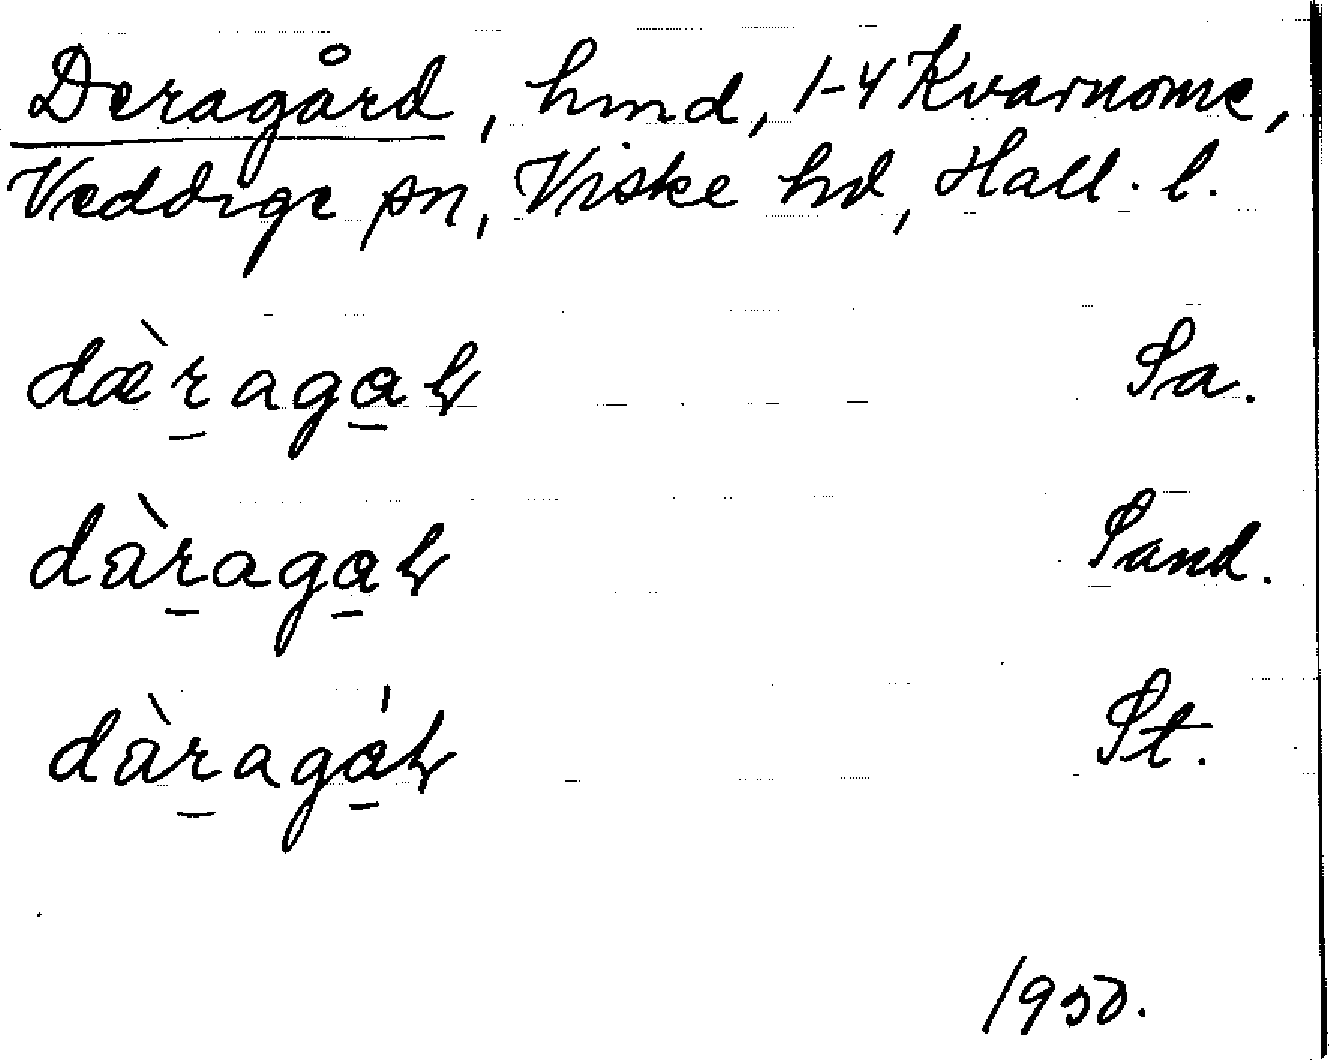 Deragård, hmd, 1-4 Kvarnome,
Veddige sn, Viske hd, Hall. l.
dæ̀ragaɬ Sa.
dàragaɬ Sand.
dàragáɬ St.
1950.